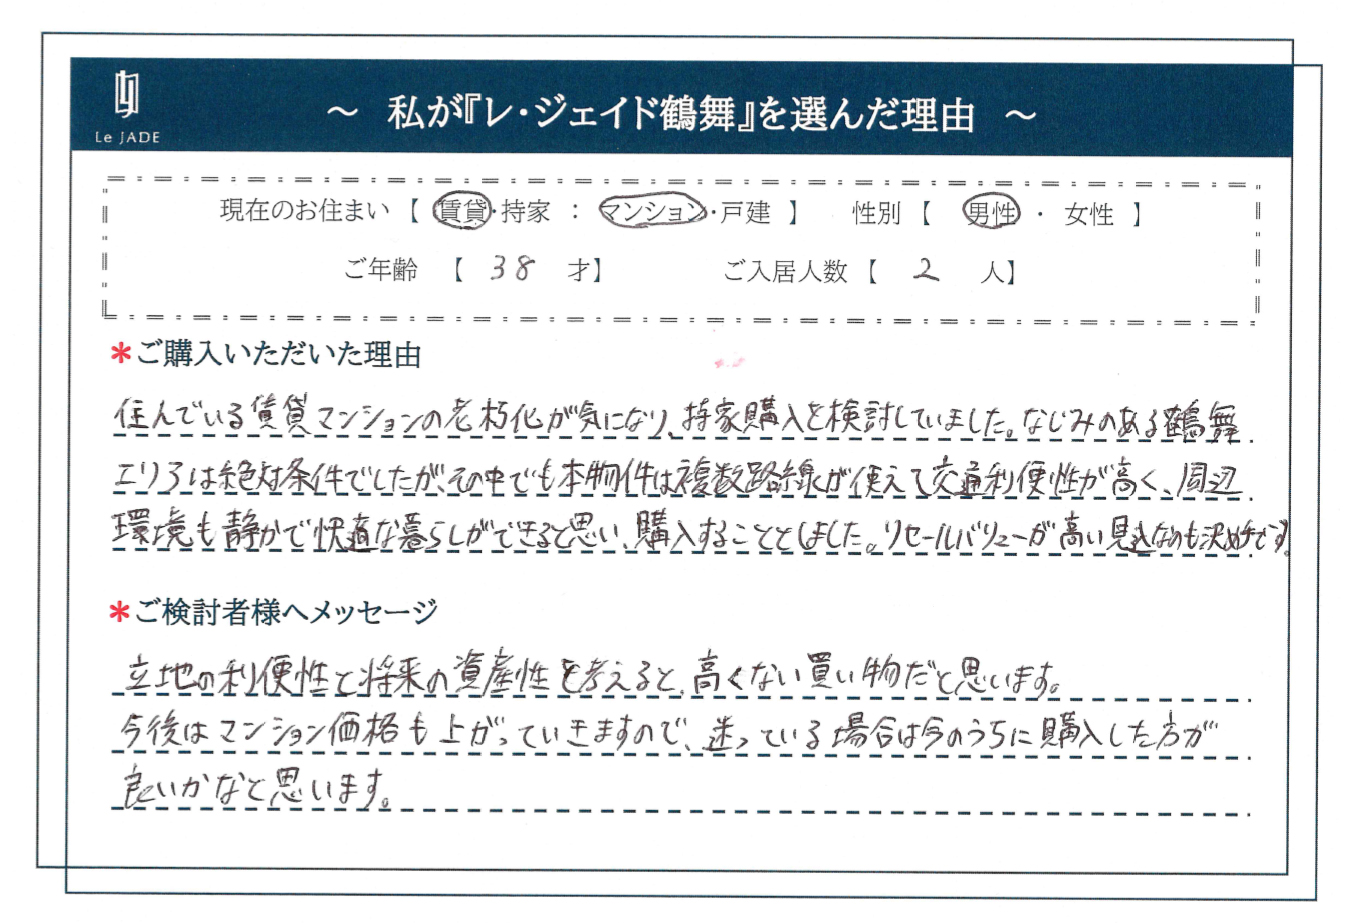 Le JADE
～ 私が『レ・ジェイド鶴舞』を選んだ理由 ～
現在のお住まい【 賃貸・持家 : マンション・戸建 】 性別【 男性 ・ 女性 】
ご年齢 【 38 才】 ご入居人数【 2 人】
*ご購入いただいた理由
住んでいる賃貸マンションの老朽化が気になり、持家購入を検討していました。なじみのある鶴舞
エリアは絶対条件でしたが、その中でも本物件は複数路線が使えて交通利便性が高く、周辺
環境も静かで快適な暮らしができると思い、購入することとしました。リセールバリューが高い見込なのも決め手です。
*ご検討者様へメッセージ
立地の利便性と将来の資産性を考えると、高くない買い物だと思います。
今後はマンション価格も上がっていきますので、迷っている場合は今のうちに購入した方が
良いかなと思います。